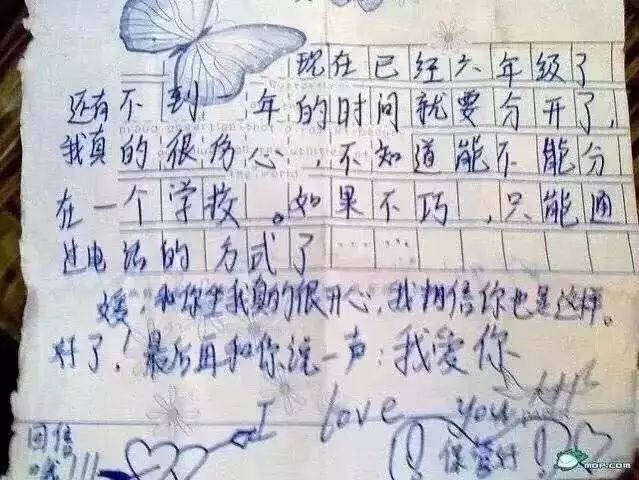 现在已经六年级了
还有不到 年的时间就要分开了,
我真的很伤心,不知道能不能分
在一个学校。如果不巧,只能通
过电话的方式了……
媛,和你坐我真的很开心,我相信你也是这样。
好了!最后再和你说一声:我爱你
I love you
回信
哦!!!
保管好
MOP.COM